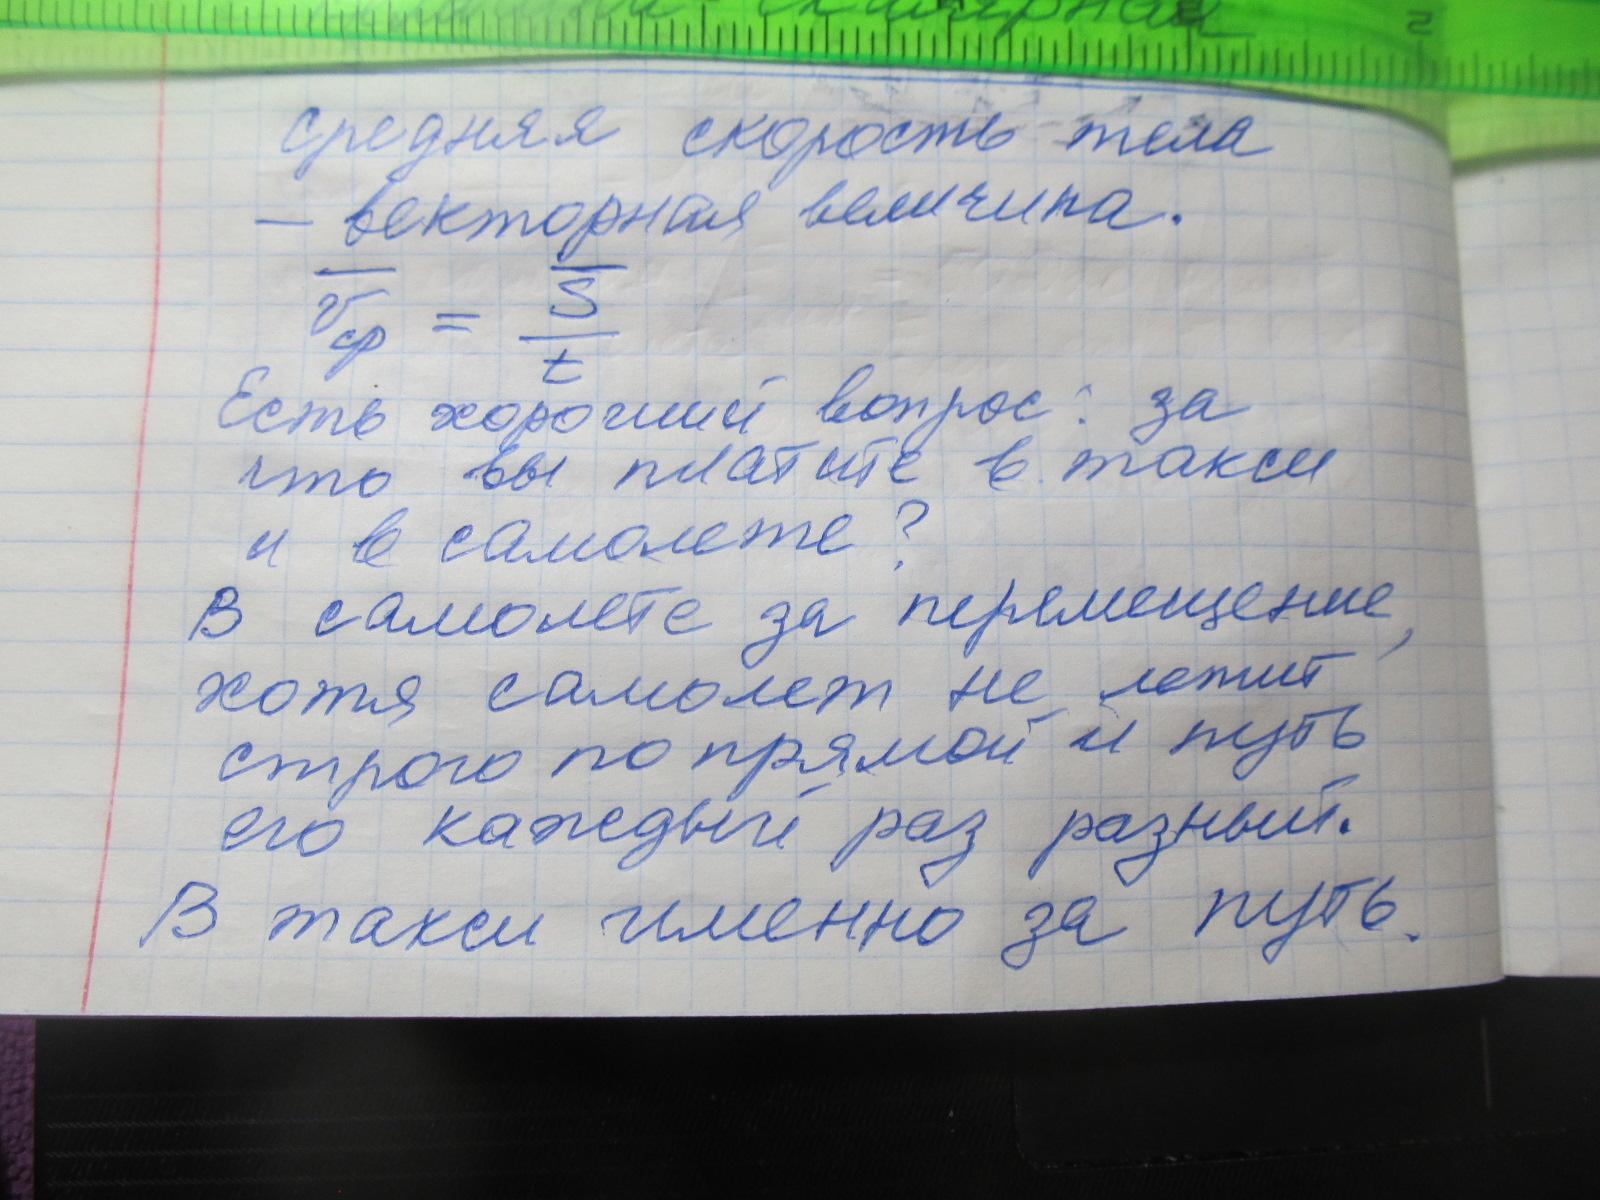 скалярная
средняя скорость тела
– векторная величина.
v̅ср = S̅/t
Есть хороший вопрос: за
что вы платите в такси
и в самолете?
В самолете за перемещение,
хотя самолет не летит
строго по прямой и путь
его каждый раз разный.
В такси именно за путь.